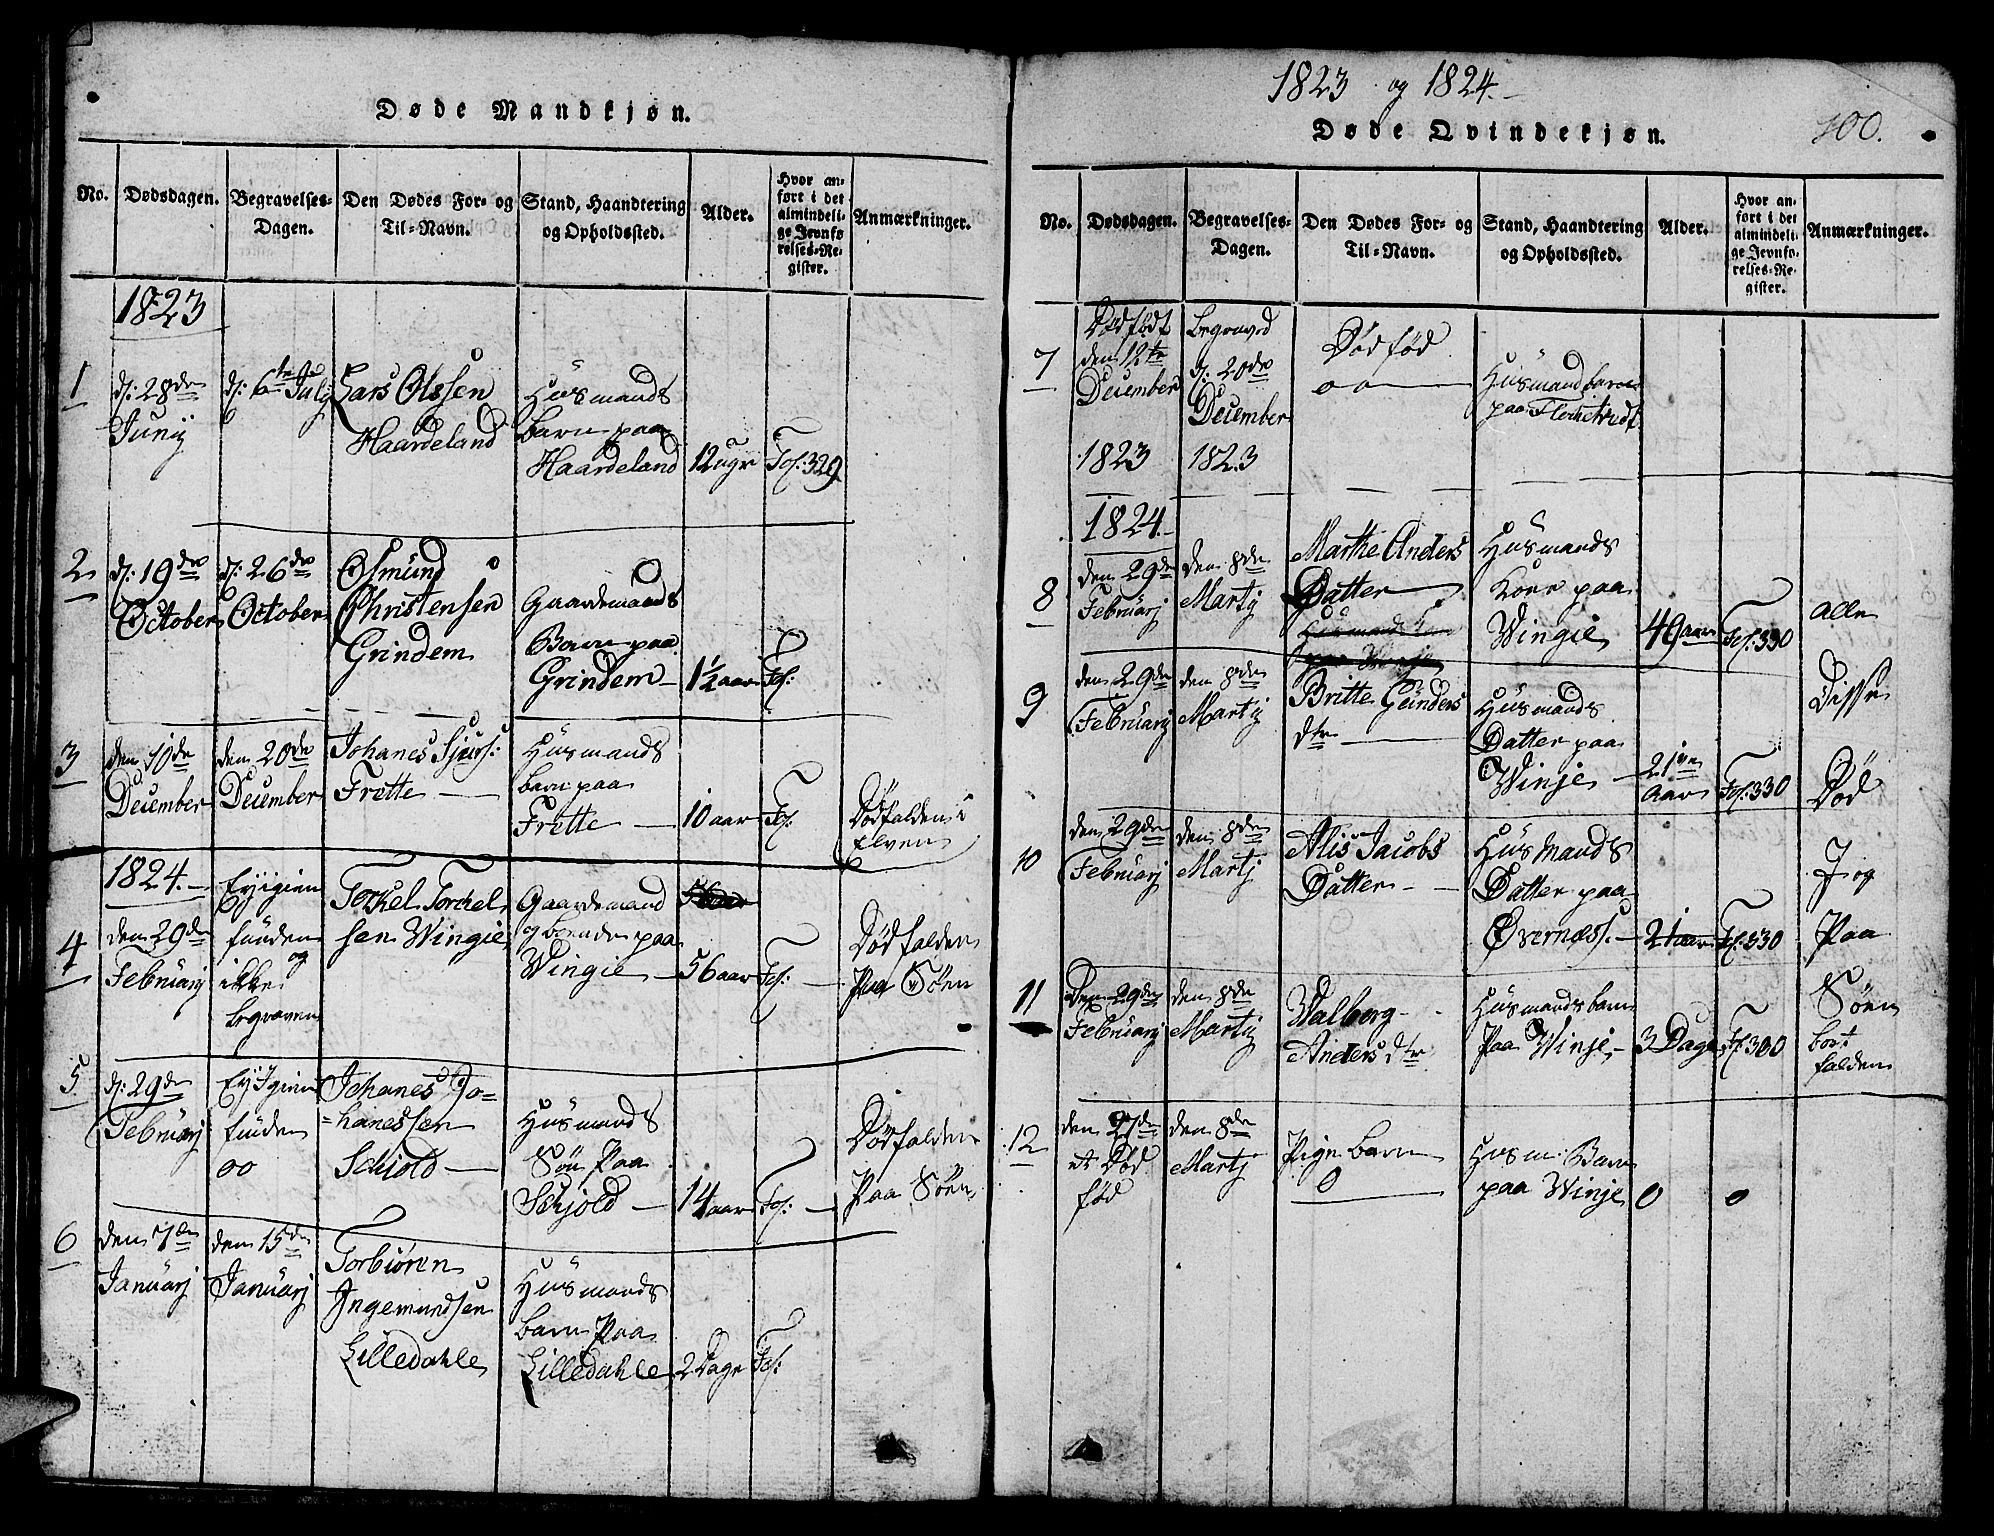 1823 og 1824.
100.
Døde Mandkjøn.
No.
Dødsdagen.
Begravelses-
Dagen.
Den Dødes For- og
Til-Navn.
Stand, Haandtering
og Opholdssted.
Alder.
Hvor an-
ført i det
almindeli-
ge Jevnfø-
relses-Re-
gister.
Anmærkninger.
1823
1
d: 28de
Junij
d: 6te July
Lars Olssen
Haardeland
Huusmands
barn paa
Haardeland
12 ugr
Fol: 329
2
d: 19de
October
d: 26de
October
Osmund
Christensen
Grindem
Gaardemands
Barn paa
Grindem
1½ aar
Fol:
3
den 10de
December
den 20de
December
Johanes Sjurs:
Frette
Huusmands
barn paa
Frette
10 aar
Fol:
Dødfalden i
Elven
1824.
4
den 29de
Februarj
Ey igien
funden
og
ikke
begraven
Torkel Torckel
sen Wingie
Gaardemand
og boende paa
Wingie
56 aar
Fol:
Dødfalden
Paa Söen
5
d: 29de
Februarj
Ey Igien
funden
00
Johanes Jo-
hanessen
Schiold
Huusmands
Sön Paa
Schjold
14 aar
Fol:
Dødfalden
Paa Söen
6
den 7de
Januarj
den 15de
Januarj
Torbiören
Ingemundsen
Lilledahle
Huusmands
barn Paa
Lilledahle
2 Dage
Fol:
Døde Qvindekjøn.
No.
Dødsdagen.
Begravelses-
Dagen.
Den Dødes For- og
Til-Navn.
Stand, Haandtering
og Opholdssted.
Alder.
Hvor an-
ført i det
almindeli-
ge Jevnfø-
relses-Re-
gister.
Anmærkninger.
7
Dødfødt
den 12te
December
1823
begraved
d: 20de
December
1823
Dødfød
Huusmandbarn
paa
1824.
8
den 29de
Februarj
den 8de
Martij
Marthe Anders
Datter
Huusmands
Kone paa
Wingie
49 aar
Fol: 330
alle
9
den 29de
Februarj
den 8de
Martij
Britte Gunders
dtr
Huusmands
Datter paa
Winje
21
Aar
Fol: 330
Disse
Død
10
den 29de
Februarj
den 8de
Martj
Alis Jacobs
Datter
Huusmands
Datter paa
Øvernæss.
21 aar
Fol: 330
J og
Paa
11
Den 29de
Februarj
den 8de
Martij
Walberg
Anders dtr
Huusmands barn
Paa Winje
3 Dage
Fol: 300
Söen
bort
falden
12
den 27de
et Død
fød
den 8de
Martj
Pige barn
0
Huusm: Barn
paa Winje
0
0